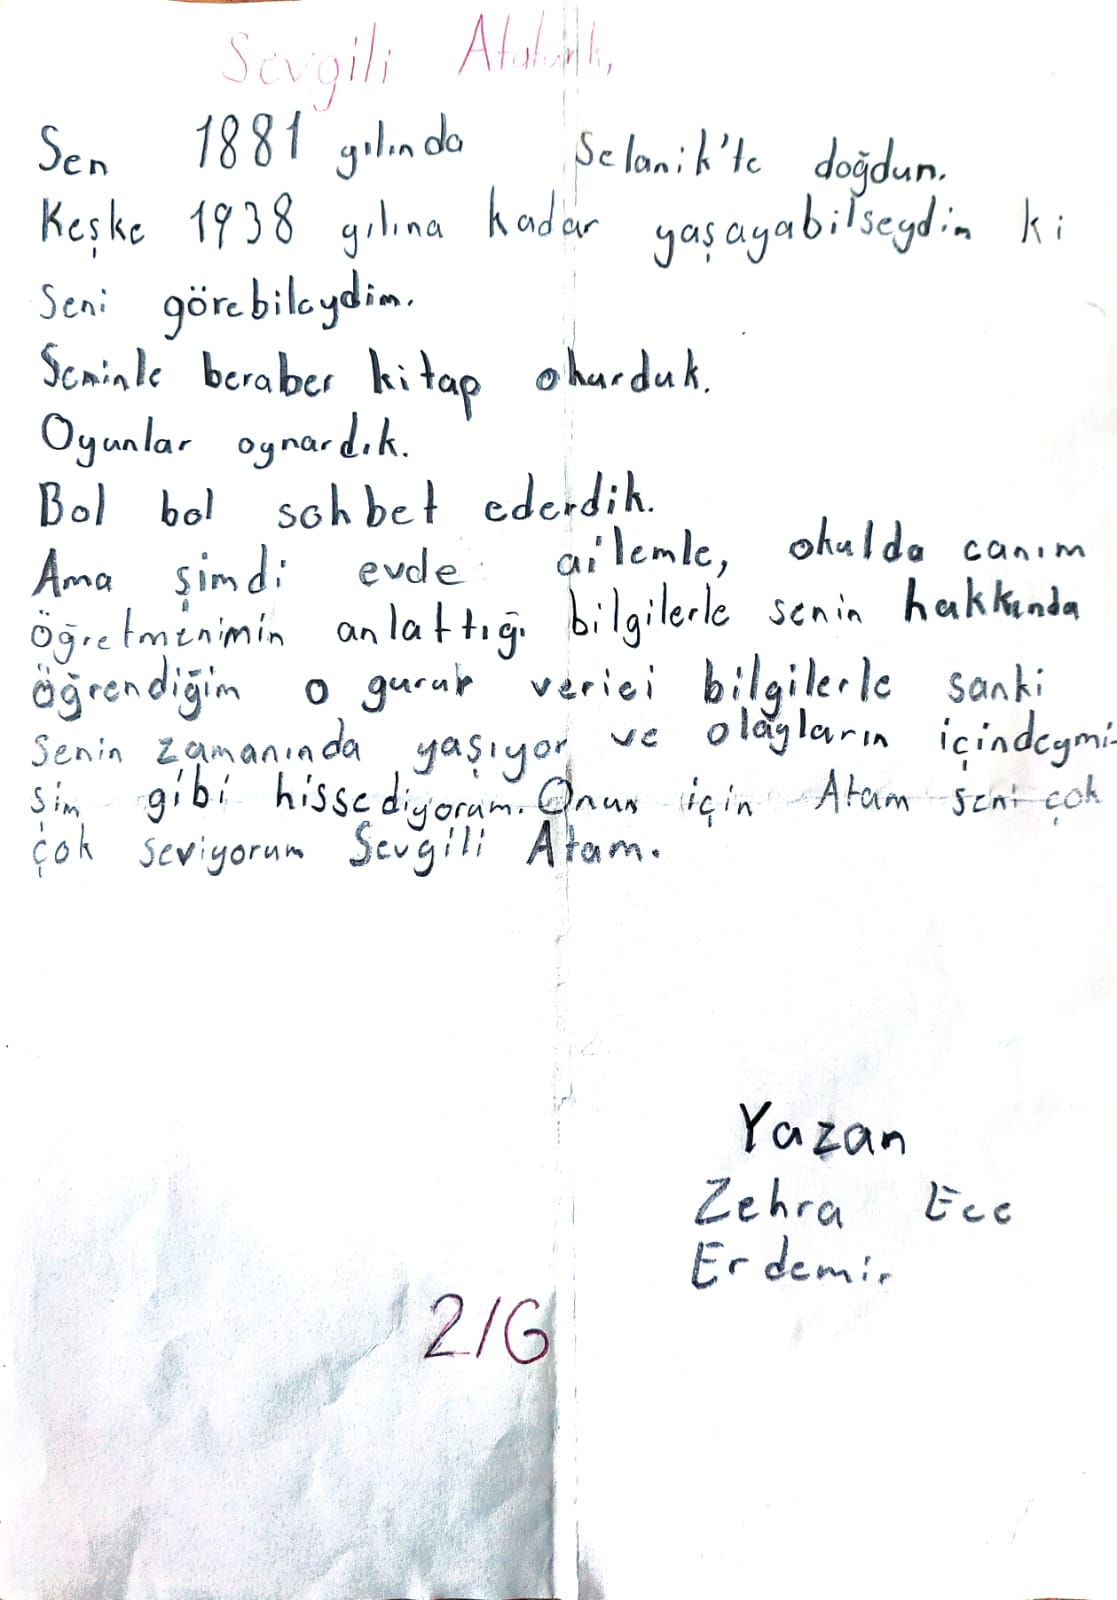 Sevgili Atatürk,
Sen 1881 yılında Selanik'te doğdun.
Keşke 1938 yılına kadar yaşayabilseydin ki
seni görebileydim.
Seninle beraber kitap okurduk.
Oyunlar oynardık.
Bol bol sohbet ederdik.
Ama şimdi evde ailemle, okulda canım
öğretmenimin anlattığı bilgilerle senin hakkında
öğrendiğim o gurur verici bilgilerle sanki
senin zamanında yaşıyor ve olayların içindeymi-
şim gibi hissediyorum. Onun için Atam seni çok
çok seviyorum Sevgili Atam.
Yazan
Zehra Ece
Erdemir
2/G